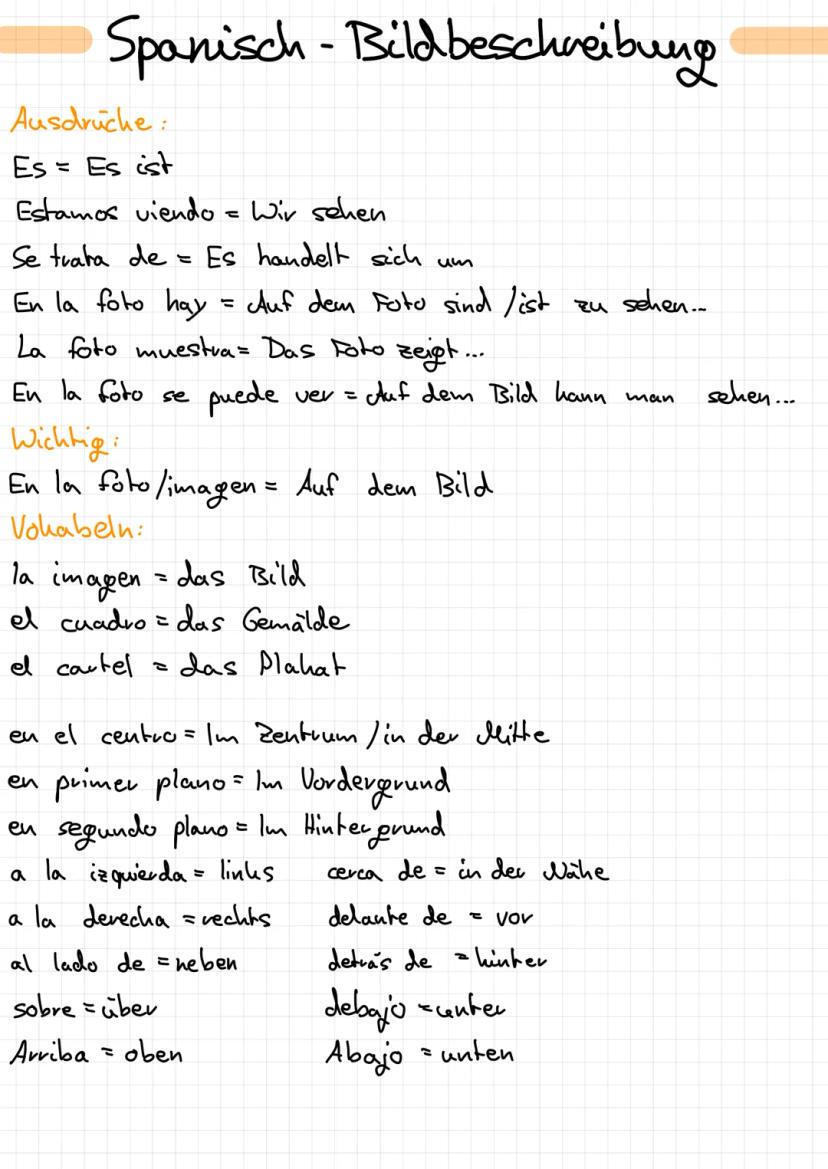 Spanisch - Bildbeschreibung
Ausdrücke:
Es = Es ist
Estamos viendo = Wir sehen
Se trata de = Es handelt sich um
En la foto hay = Auf dem Foto sind / ist zu sehen...
La foto muestra = Das Foto zeigt...
En la foto se puede ver = Auf dem Bild kann man sehen...
Wichtig:
En la foto/imagen = Auf dem Bild
Vokabeln:
la imagen = das Bild
el cuadro = das Gemälde
el cartel = das Plakat
en el centro = Im Zentrum / in der Mitte
en primer plano = Im Vordergrund
en segundo plano = Im Hintergrund
a la izquierda = links cerca de = in der Nähe
a la derecha = rechts delante de = vor
al lado de = neben detrás de = hinter
sobre = über debajo = unter
Arriba = oben Abajo = unten